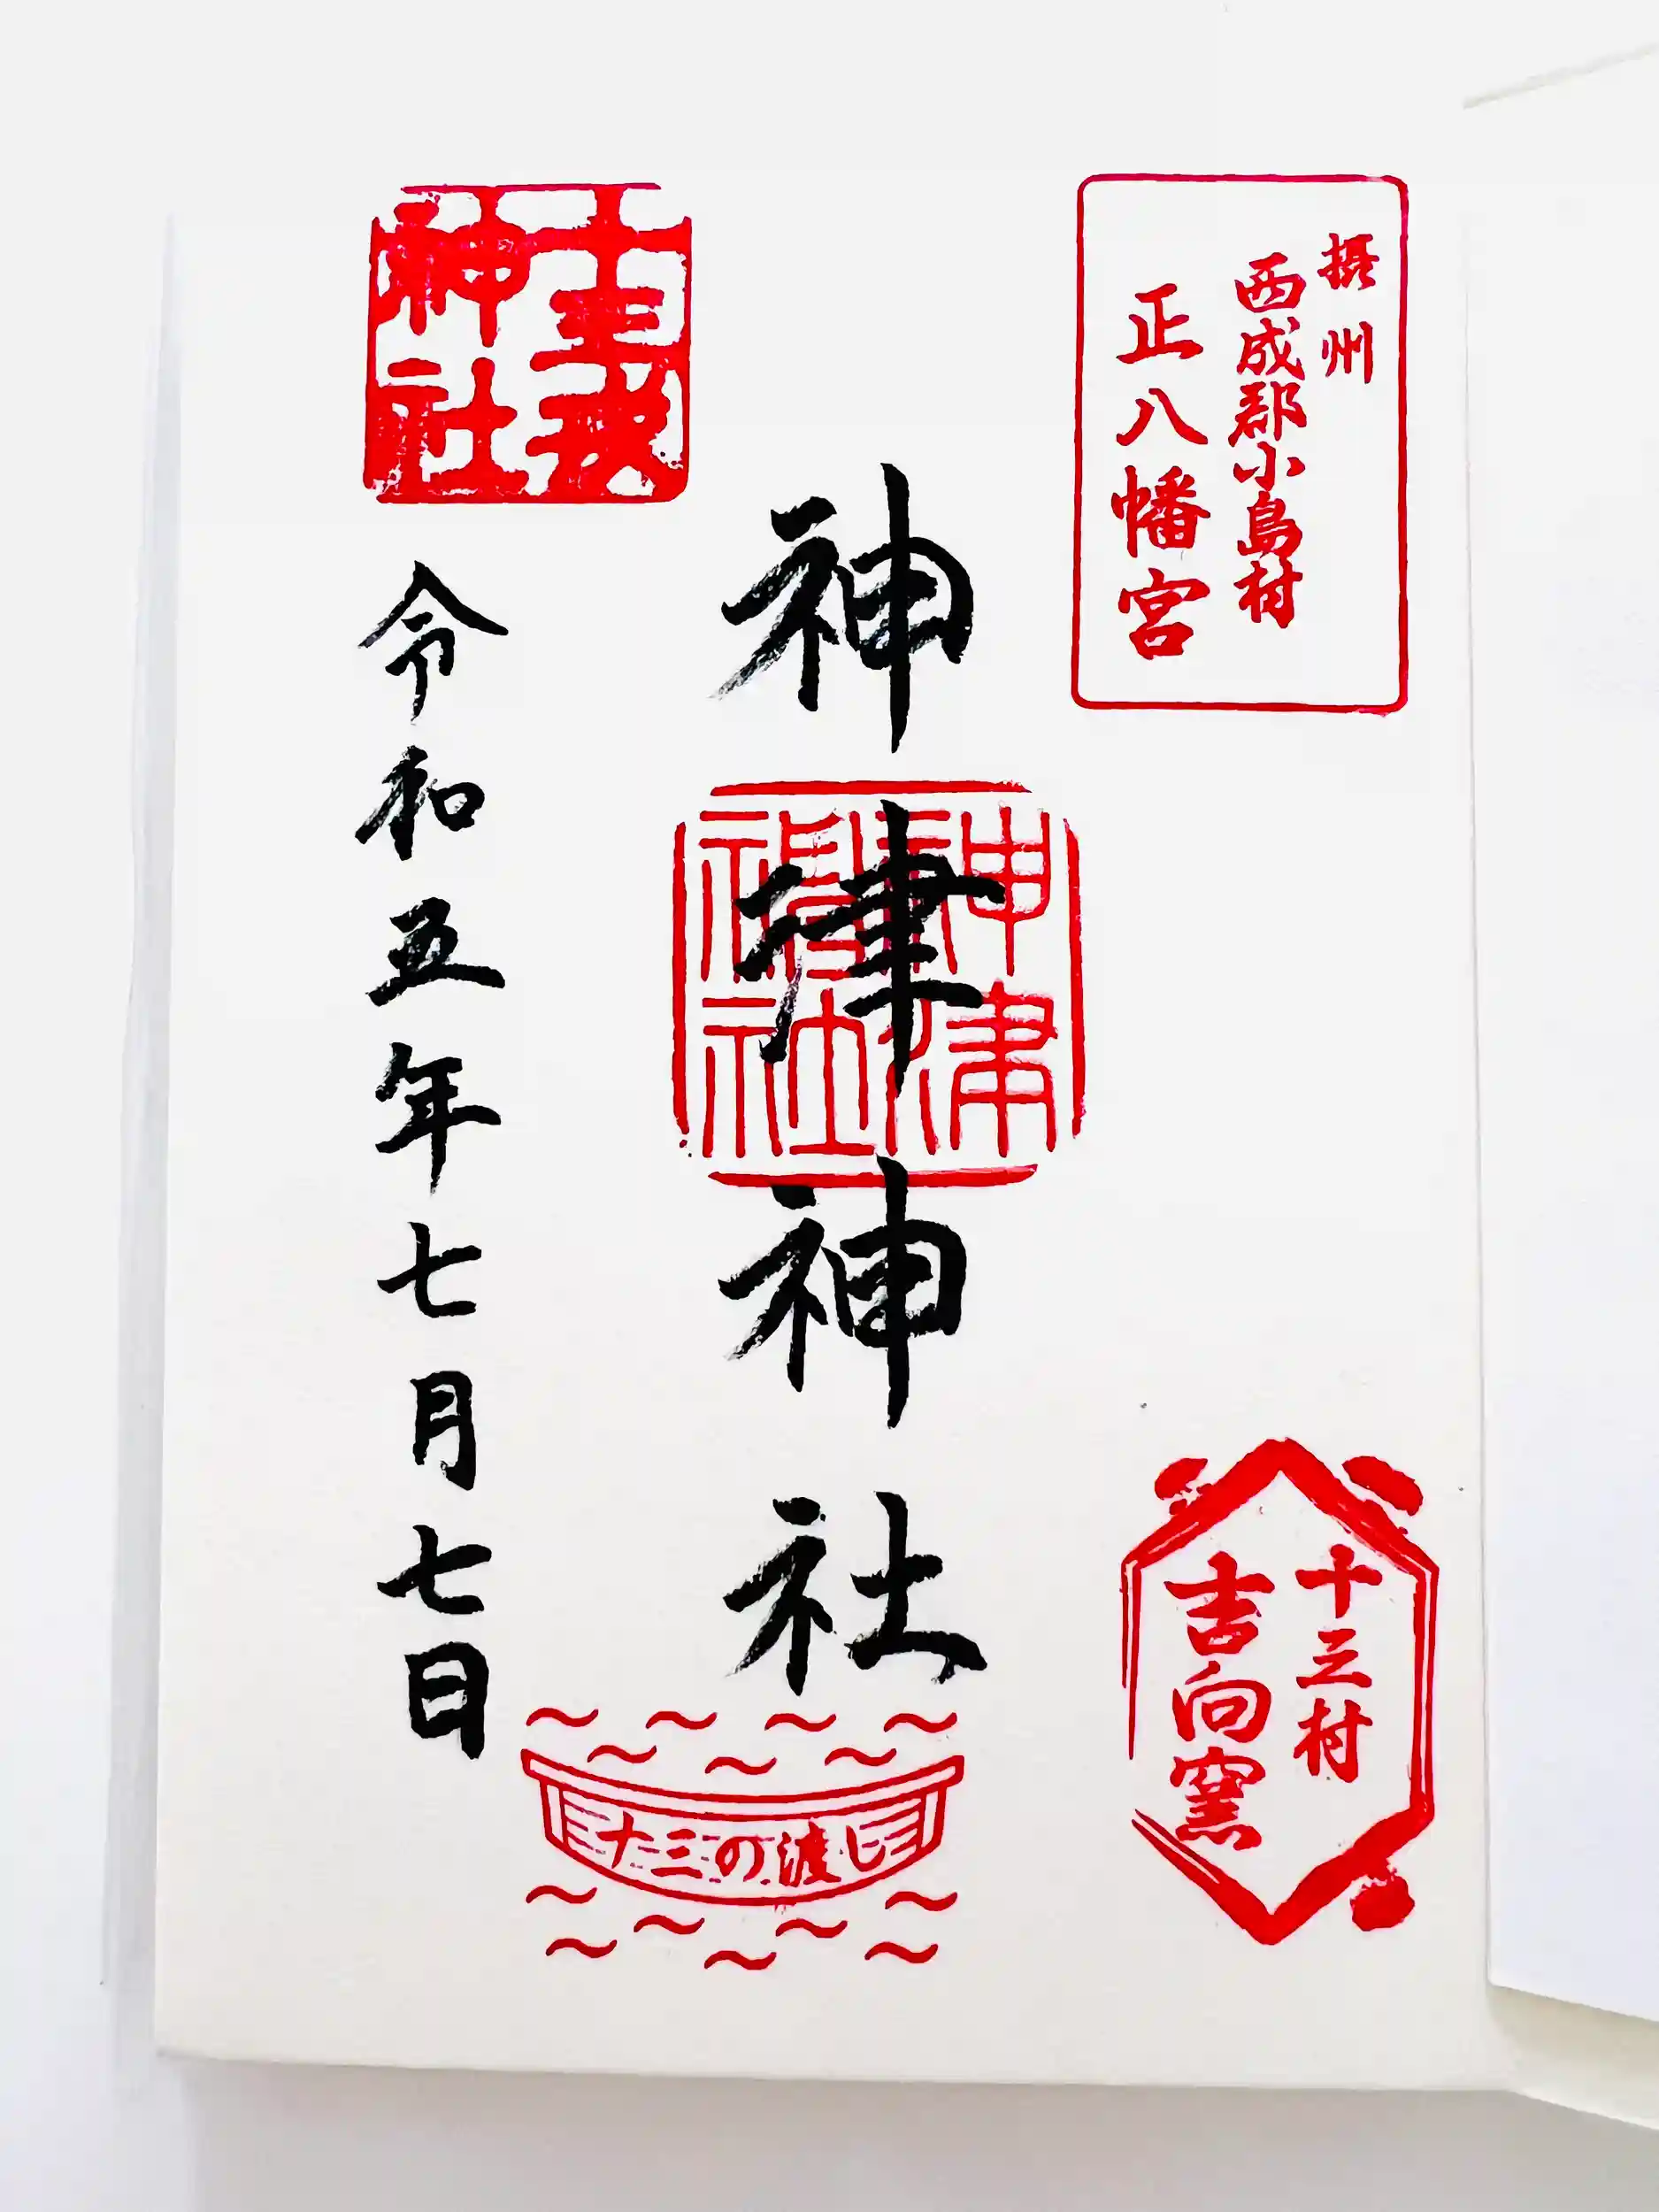 摂州
西成郡小島村
正八幡宮
十三村
吉向窯
神津神社
神津
神社
十三戎
神社
令和五年七月七日
十三の渡し